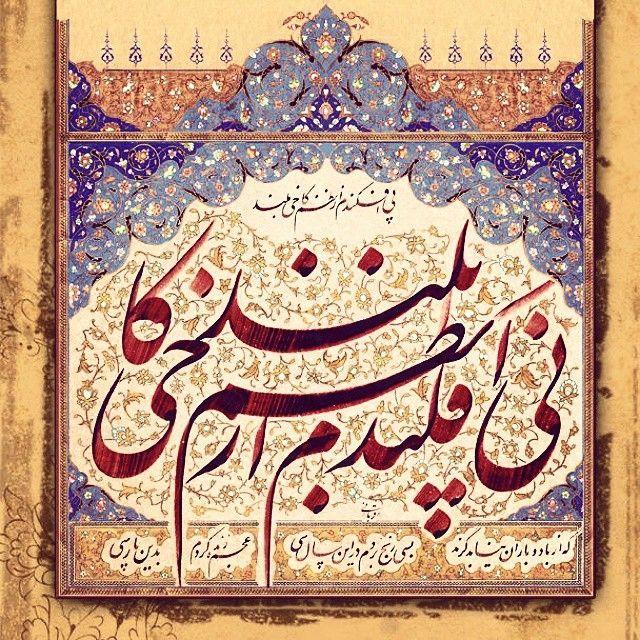 پی افکندم از نظم کاخی بلند
پی افکندم از نظم کاخی بلند
که از باد و باران نیابد گزند بسی رنج بردم درین سال سی عجم زنده کردم بدین پارسی